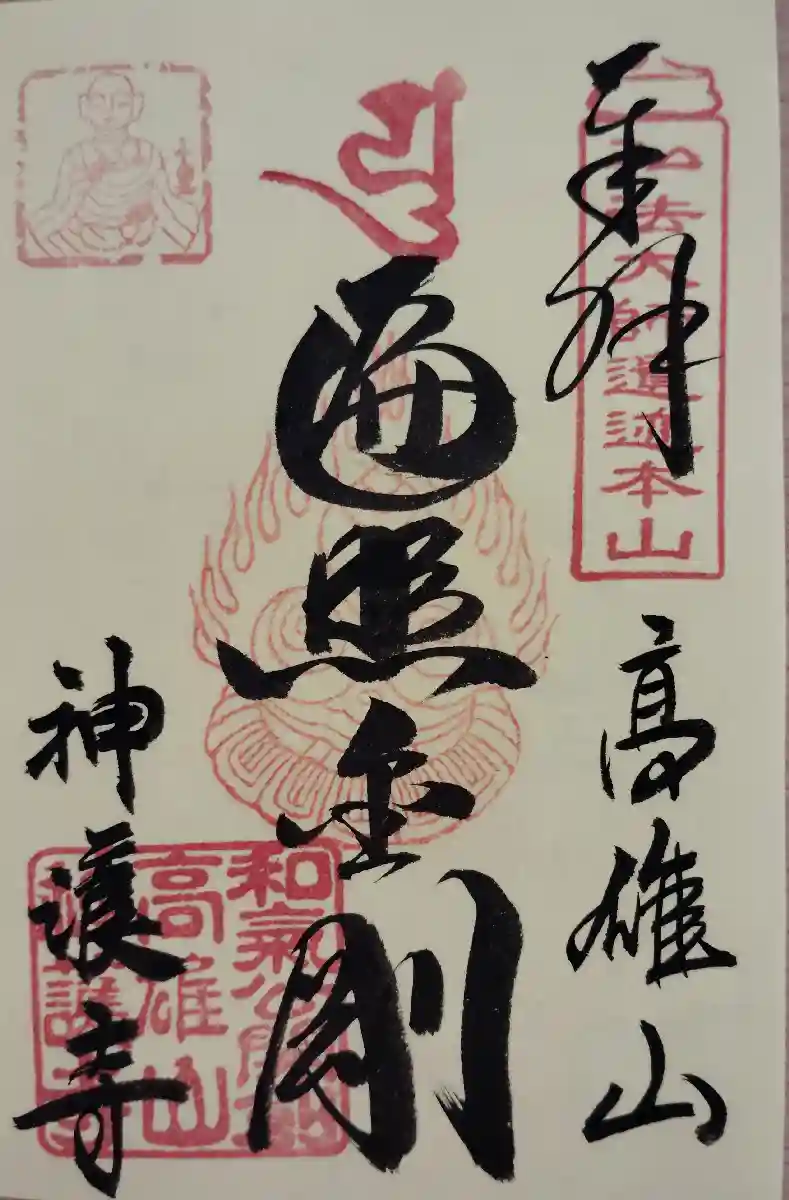 奉拝
弘法大師遺迹本山
高雄山
遍照金剛
和氣公
高雄山
神護寺
神護寺